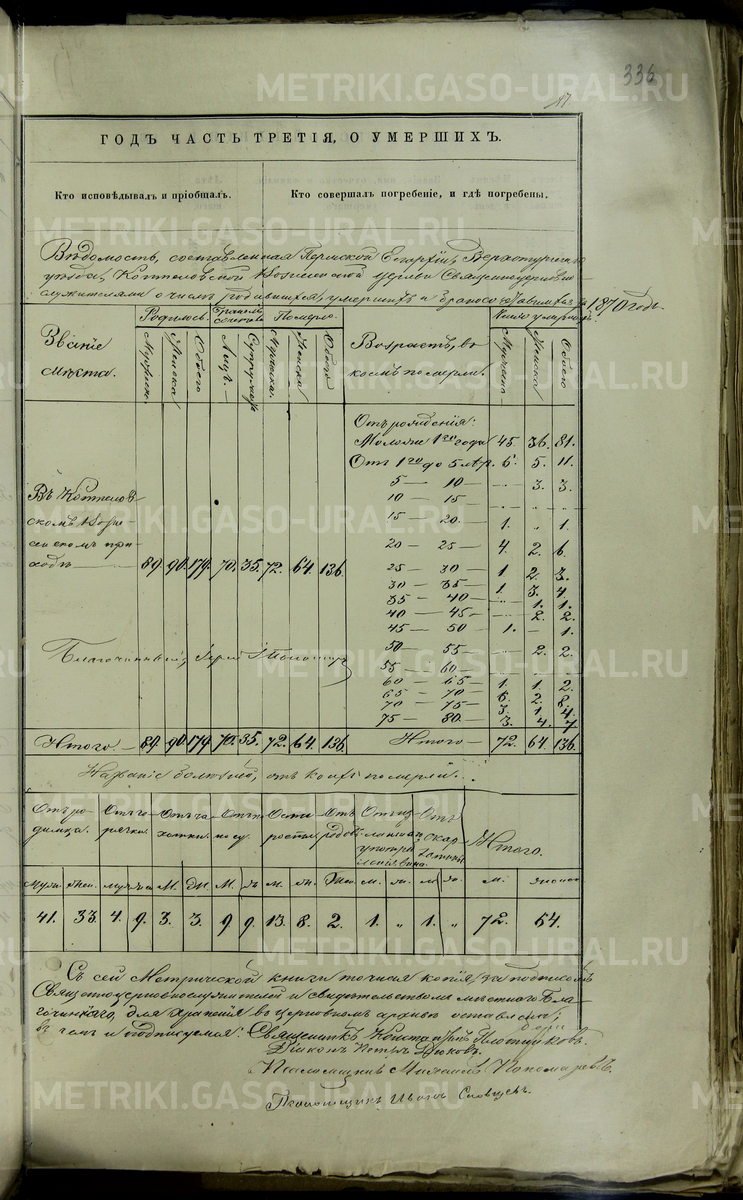 336
ГОДЪ ЧАСТЬ ТРЕТІЯ, О УМЕРШИХЪ.
Кто исповѣдывалъ и пріобщалъ.
Кто совершалъ погребеніе, и гдѣ погребены.
Вѣдомость, составленная Пермской Епархіи, Верхотурскаго
уѣзда, Коптеловской церкви Священноцерковно
служителями о числѣ родившихся, умершихъ и бракосочетавшихся за 1870 годъ.
Званіе мѣста.
Родилось. Бракомъ сочетано. Померло.
Мужеска. Женска. Обоего. Лицъ. Супружествъ. Мужска. Женска. Обоего.
Возрастъ, въ коемъ померли.
Число умершихъ.
Мужеска Женска Обоего
Отъ рожденія:
Моложе 1го года 45. 36. 81.
Отъ 1го до 5 лѣтъ 6. 5. 11.
5 — 10 — „ 3. 3.
10 — 15 —
15 — 20. — 1. „ 1.
20 — 25 — 4. 2. 6.
25 — 30 — 1 2. 3.
30 — 35 — 1. 3. 4.
35 — 40 — 1. 1.
40 — 45 — 2. 2.
45 — 50 1. — 1.
50 — 55 — 2. 2.
55 — 60 —
60 — 65 — 1. 1. 2.
65 — 70 — 6. 2. 8.
70 — 75 — 3. 1. 4.
75 — 80. — 3. 4. 7.
Въ Коптелов-
скомъ
приходѣ 89. 90. 179. 70. 35. 72. 64. 136.
Благочинный, Іерей
Итого. — 89. 90. 179. 70. 35. 72. 64. 136.
Итого — 72. 64. 136.
Названіе болѣзней, отъ коихъ померли.
Отъ родимца. Отъ горячки. Отъ чахотки. Отъ поносу. Отъ старости. Отъ родовъ. Отъ излишняго употребленія вина. Отъ скарлатины Итого.
Муж. Жен. муж. ж. М. Ж. М. ж. м. ж. Жен. м. ж. м ж. м. женск.
41. 33. 4. 9. 3. 3. 9 9. 13. 8. 2. 1. „ 1. „ 72. 64.
Съ сей Метрической книги точная копія, за подписомъ
Священноцерковнослужителей и свидѣтельствомъ мѣстнаго Бла-
гочиннаго, для храненія въ церковномъ архивѣ оставлена;
въ чемъ и подписуемся: Священникъ Константинъ Плотниковъ.
Діаконъ Петръ Дюковъ.
Псаломщикъ Михаилъ Пономаревъ.
Псаломщикъ Иванъ Словцевъ.
METRIKI.GASO-URAL.RU